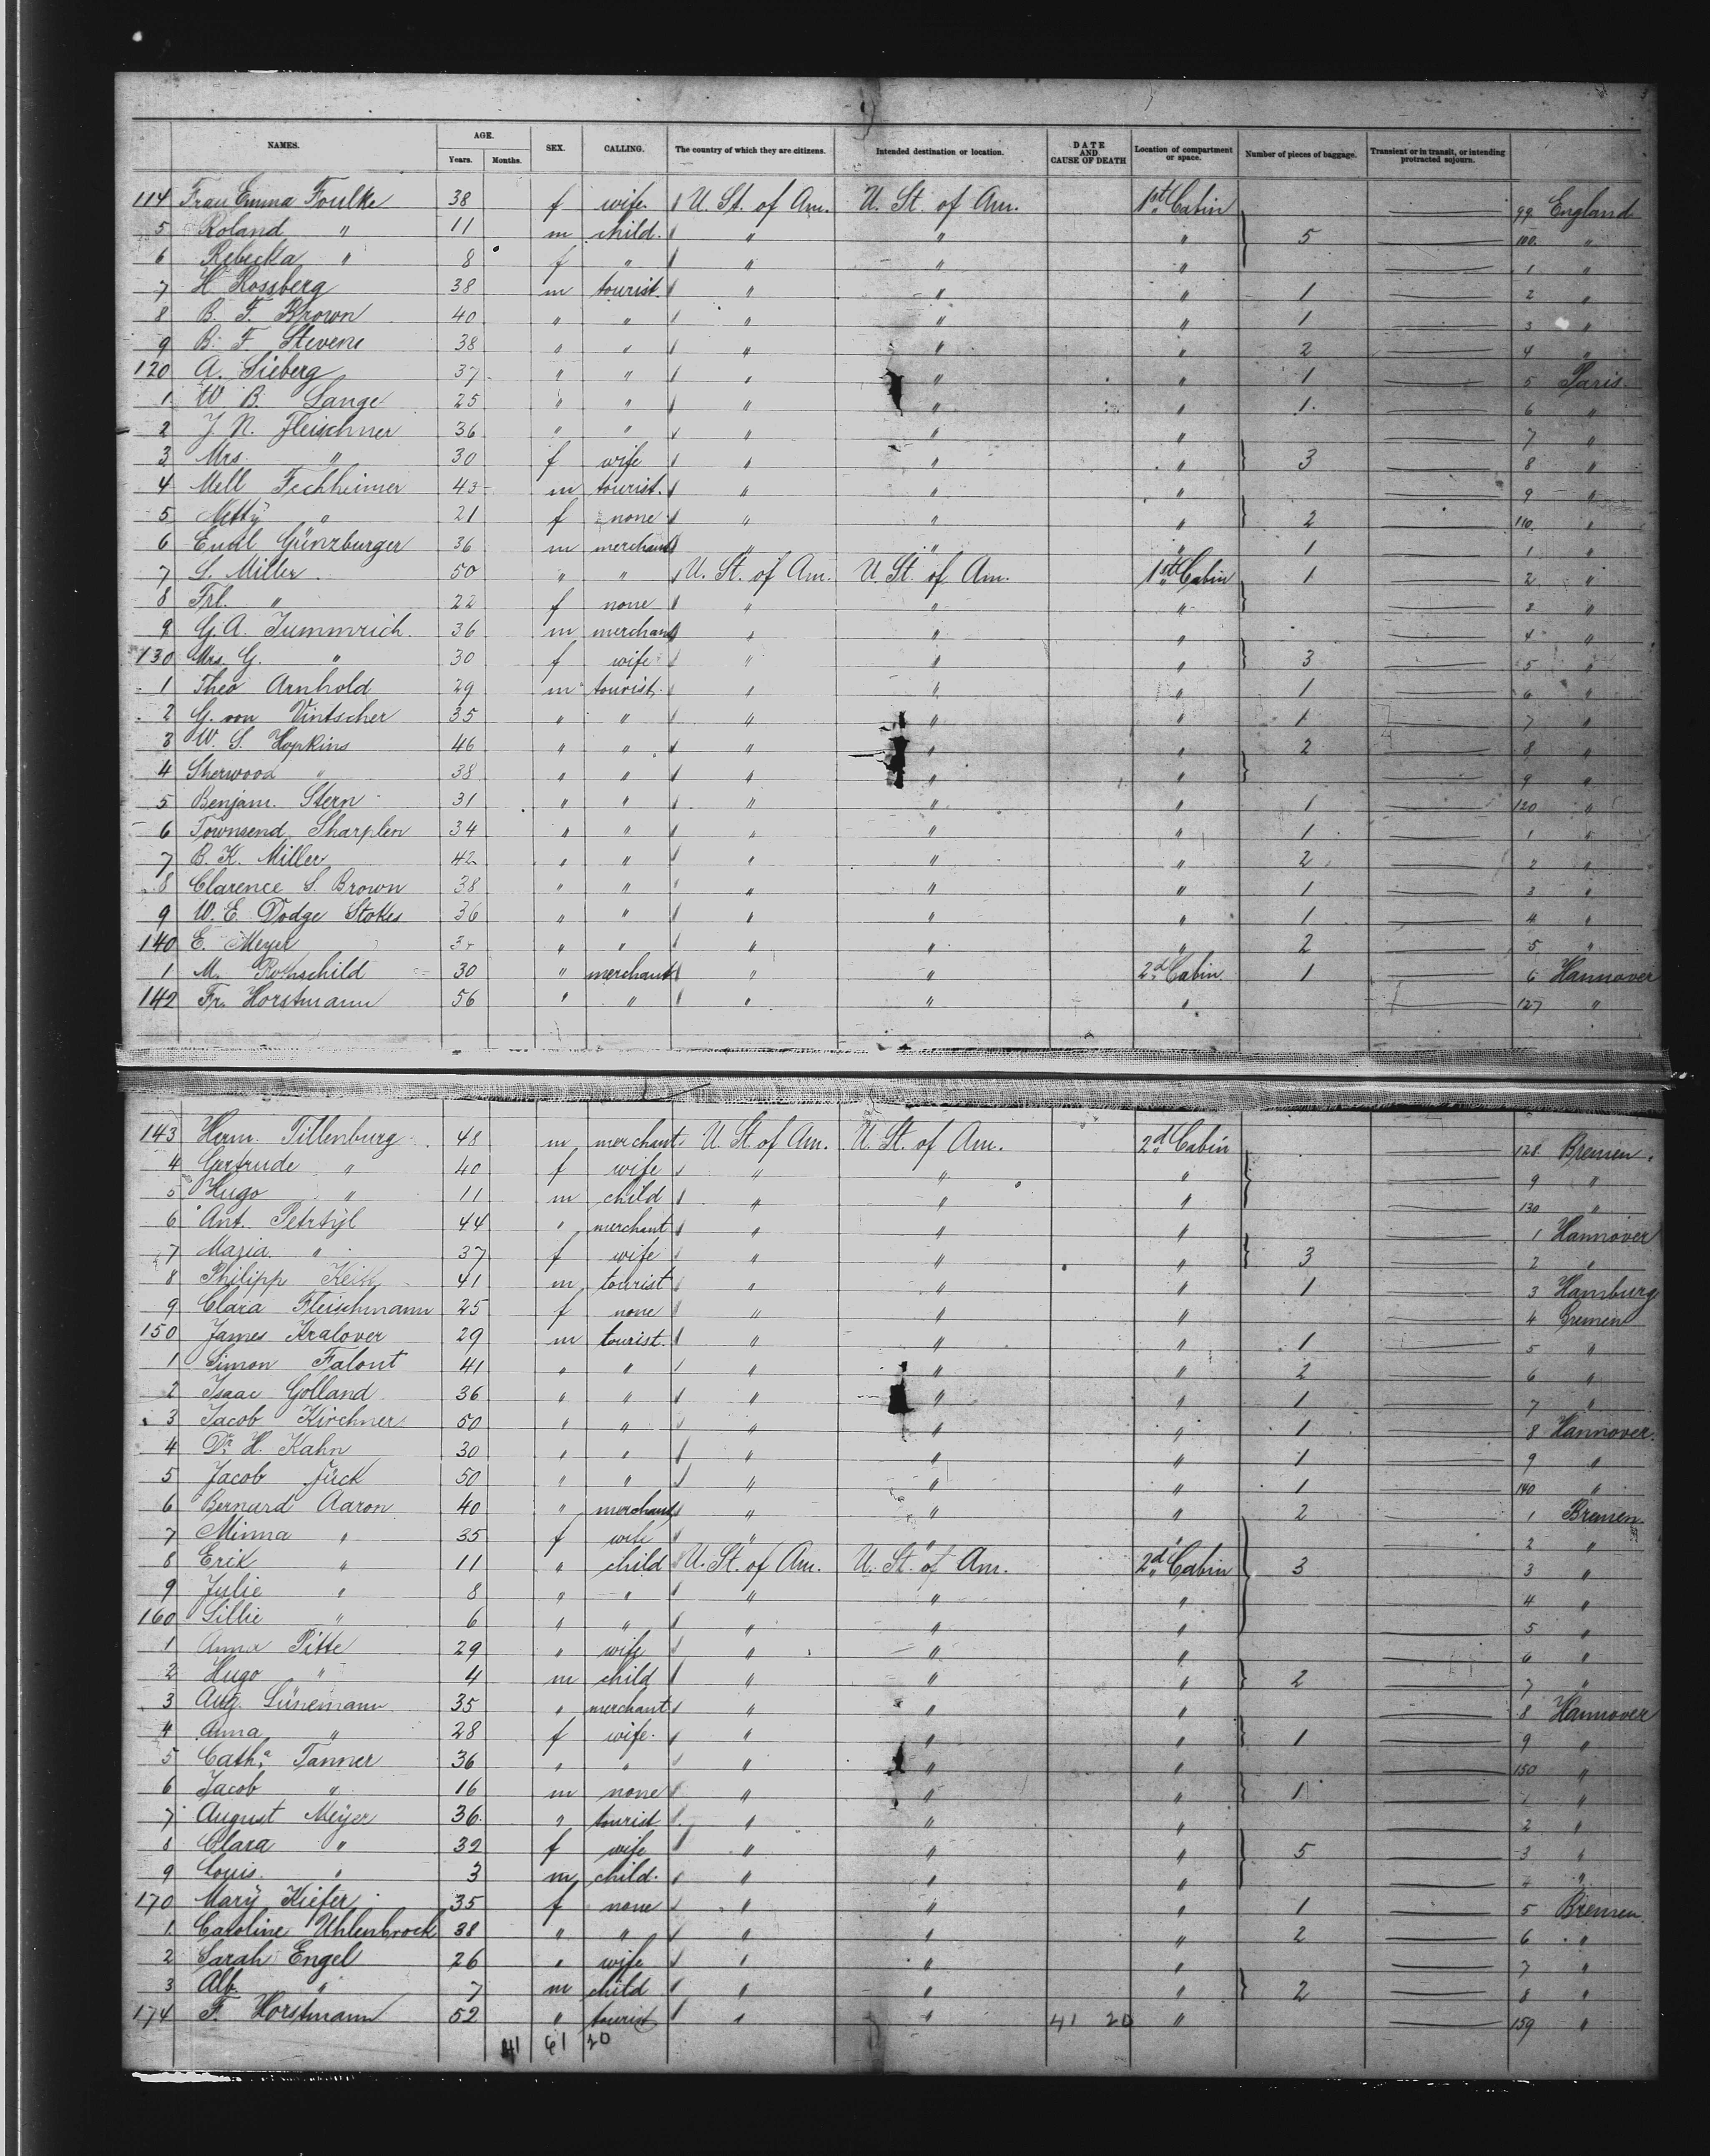 NAMES. AGE. SEX. CALLING. The country of which they are citizens. Intended destination or location. DATE AND CAUSE OF DEATH Location of compartment or space. Number of pieces of baggage. Transient or in transit, or intending protracted sojourn.
Years. Months.
114 Frau Emma Foulke 38 f wife U. St. of Am. U. St. of Am. 1st Cabin 99 England
5 Roland " 11 m child. " " " 5 100. "
6 Rebecka " 8 f " " " " 1 "
7 H. Rossberg 38 m tourist. " " " 1 2 "
8 B. F. Brown 40 " " " " " 1 3 "
9 B. F. Stevens 38 " " " " " 2 4 "
120 A. Sieberg 37 " " " " " 1 5 Paris
1 W B. Lange 25 " " " " " 1 6 "
2 J. N. Fleischner 36 " " " " " 7 "
3 Mrs. " 30 f wife " " " 3 8 "
4 Mell Fechheimer 43 m tourist. " " " 9 "
5 Netty " 21 f none " " " 2 110. "
6 Emil Günzburger 36 m merchant " " " 1 1 "
7 S. Miller 50 " " U. St. of Am. U. St. of Am. 1st Cabin 1 2 "
8 Frl. " 22 f none " " " 3 "
9 G. A. Jummrich. 36 m merchant " " " 4 "
130 Mrs. G. " 30 f wife " " " 3 5 "
1 Theo Arnhold 29 m tourist. " " " 1 6 "
2 G. von Vintscher 35 " " " " " 1 7 "
3 W. S. Hopkins 46 " " " " " 2 8 "
4 Sherwood " 38 " " " " " 9 "
5 Benjam. Stern 31 " " " " " 1 120 "
6 Townsend Sharplen 34 " " " " " 1 1 "
7 B. K. Miller 42 " " " " " 2 2 "
8 Clarence S. Brown 38 " " " " " 1 3 "
9 W. E. Dodge Stokes 36 " " " " " 1 4 "
140 E. Meyer " " " " " 2 5 "
1 M. Rothschild 30 " merchant " " 2d Cabin 1 6 Hannover
142 Fr. Horstmann 56 " " " " " 127 "
143 Herm. Tillenburg 48 m merchant. U. St. of Am. U. St. of Am. 2d Cabin 128 Bremen.
4 Gertrude " 40 f wife " " " 9 "
5 Hugo " 11 m child " " " 130 "
6 Ant. Petrtyl 44 " merchant " " " 1 Hannover
7 Maria " 37 f wife " " " 3 2 "
8 Philipp 41 m tourist " " " 1 3 Hamburg
9 Clara Fleischmann 25 f none " " " 4 Bremen
150 James Kralover 29 m tourist. " " " 1 5 "
1 Simon Falout 41 " " " " " 2 6 "
2 Isaac Golland 36 " " " " " 1 7 "
3 Jacob Kirchner 50 " " " " " 1 8 Hannover.
4 Dr. H. Kahn 30 " " " " " 1 9 "
5 Jacob Jück 50 " " " " " 1 140 "
6 Bernard Aaron 40 " merchant " " " 2 1 Bremen.
7 Minna " 35 f wife " " " 2 "
8 Erik " 11 " child U. St. of Am. U. St. of Am. 2d Cabin 3 3 "
9 Julie " 8 " " " " " 4 "
160 Lillie " 6 " " " " " 5 "
1 Anna Pitte 29 " wife " " " 6 "
2 Hugo " 4 m child " " " 2 7 "
3 Aug. Lünemann 35 " merchant " " " 8 Hannover
4 Anna " 28 f wife. " " " 1 9 "
5 Catha. Tanner 36 " " " " " 150 "
6 Jacob " 16 m none " " " 1 1 "
7 August Meyer 36 " tourist " " " 2 "
8 Clara " 32 f wife " " " 5 3 "
9 Louis. " 3 m child. " " " 4 "
170 Mary Kiefer 35 f none " " " 1 5 Bremen.
1. Caroline Uhlenbrock 38 " " " " " 2 6 "
2 Sarah Engel 26 " wife " " " 7 "
3 Alf. " 7 m child " " " 2 8 "
174 F. Horstmann 52 " tourist " " 41 20 " 159 "
41 61 20